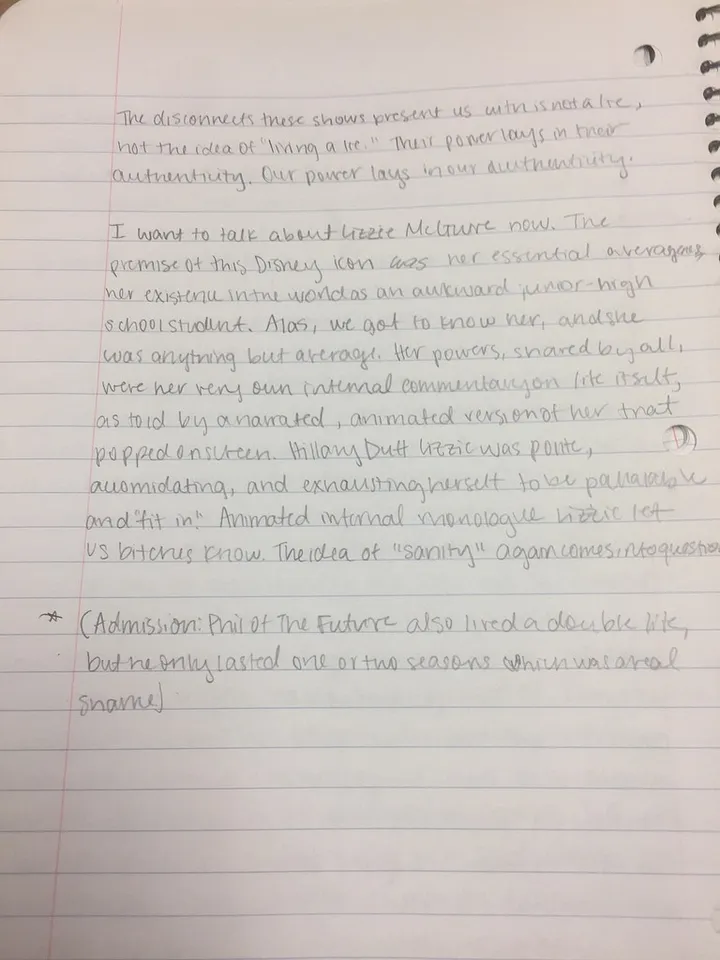 The disconnects these shows present us with is not a lie,
not the idea of "living a lie." Their power lays in their
authenticity. Our power lays in our authenticity.
I want to talk about Lizzie McGuire now. The
premise of this Disney icon was her essential averageness,
her existence in the world as an awkward junior-high
school student. Alas, we got to know her, and she
was anything but average. Her powers, shared by all,
were her very own internal commentary on life itself,
as told by a narrated, animated version of her that
popped onscreen. Hillary Duff Lizzie was polite,
accomidating, and exhausting herself to be pallalable
and "fit in." Animated internal monologue Lizzie let
us bitches know. The idea of "sanity" again comes into question
* (Admission: Phil Of The Future also lived a double life,
but he only lasted one or two seasons which was a real
shame)